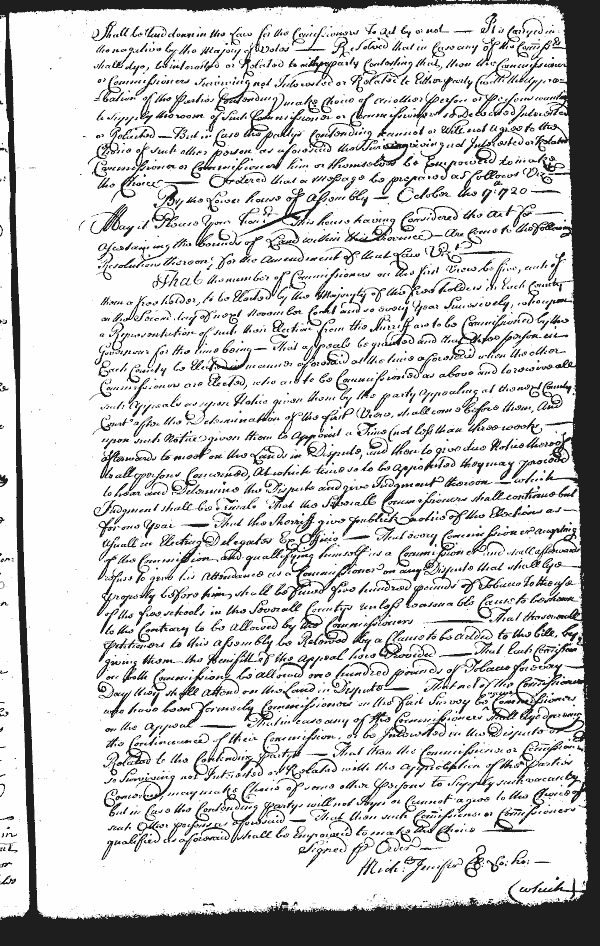 Shall be laid down in the Law for the Comissioners to Act by or not — It is Carryed in
the negative by the Majority of Votes — Resolved that in Case any of the Comissrs
shall dye, be interested or Related to either party Contesting that, then the Commissioner
or Commissioners Surviving not Interested or Related to Either party (with the Appro=
=bation of the Parties Contending) make Choice of another Person or Persons
to Supply the room of Such Commissioner or Commissioners so Deceased Interested
or Related — But in Case the partys Contending cannot or Will not agree to the
Choice of such other person as aforesaid that the Surviving not Interested or Related
Commissioner or Commissioners him or themselves be Empowered to make
the Choice — Ordered that a Message be prepared as follows Vizt
By the Lower house of Assembly — October the 7th 1720 —
May it Please Your Honrs — This house having Considered the Act for
Ascertaining the bounds of Land within this Province — Are Come to the following
Resolutions thereon, for the Amendment of that Law Vizt
That the number of Commissioners on the first View be five, each of
them a freeholder, to be Elected by the Majority of the freeholders in Each County
on the Second day of next November Court and so every Year Sucessively, whereupon
a Representation of such their Election from the Sheriff are to be Commissioned by the
Governour for the time being — That appeals be granted and that three persons in
Each County be Elected in manner aforesaid at the time aforesaid when the other
Commissioners are Elected, who are to be Commissioned as above and to receive all
such Appeals as upon Notice given them by the party Appealing at the next County
Court after the Determination of the first View, shall come before them, And
upon such Notice given them to Appoint a Time (not less than three weeks
afterwards to meet on the Lands in Dispute, and then to give due Notice thereof
to all persons Concerned, At which time so to be Appointed they may proceed
to hear and Determine the Dispute and give Judgment thereon — which
Judgment shall be Final. That the Severall Commissioners shall continue but
for one Year — That the Sheriff give publick notice of the Elections as
usuall in Electing Delegates Ex Officio — That every Commissioner Accepting
of the Commission, and qualifying himself as a Commissioner and shall afterward
refuse to give his Attendance as a Commissioner on any Dispute that shall lye
properly before him, shall be fined five hundred pounds of Tobacco to the use
of the free schools in the Severall Countys unless reasonable Cause to be shown
to the Contrary to be Allowed by the Commissioners — That the severall
petitioners to this Assembly be Relieved by a Clause to be Added to the bill, by
giving them the Benifitt of the Appeal here Provided — That Each Comissioner
on both Commissions be allowed one hundred pounds of Tobacco for every
Day they shall Attend on the Land in Dispute — That not of the Commissioners
who have been formerly Commissioners on the first Survey be Commissioners
on the Appeal — That in case any of the Commissioners shall dye during
the Continuance of their Commission, or be Interested in the Dispute or
Related to the Contending Partys — That then the Commissioner or Comissioners
so Surviving not Interested or Related with the Approbation of the Parties
Concerned may make Choice of some other Persons to Supply such vacancy
but in Case the Contending Partys will not or Cannot agree to the Choice of
such Other persons as aforesaid — That then such Comissioner or Comissioners
qualified as aforesaid shall be Empowered to make the Choice —
Signed p Order —
Mich: Jenifer Cl: Lo: ho: —
(which